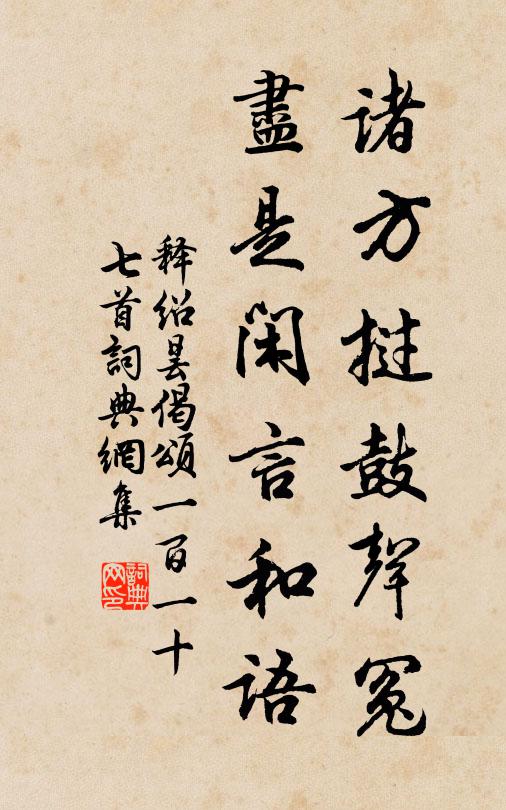 诸方挝鼓声冤
盡是闲言和语
释绍昙偈颂一百一十
七首詞典網集
詞典
网印